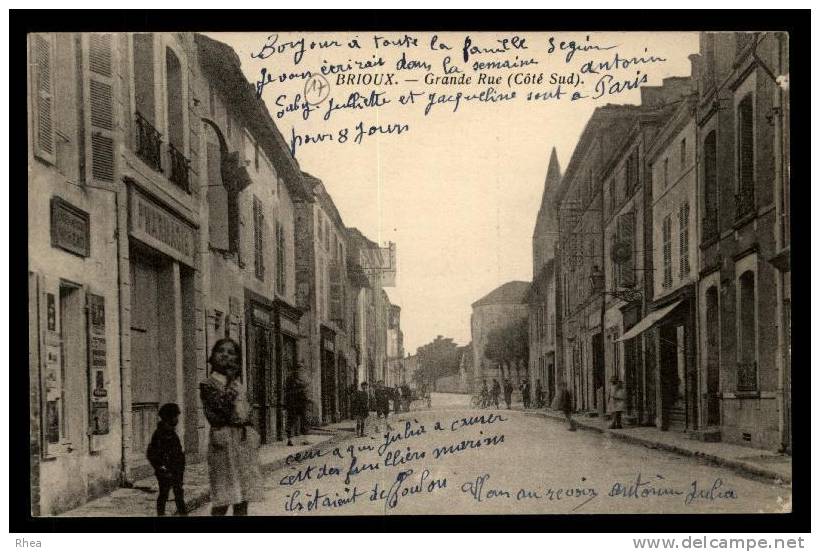 Bonjour à toute la famille Ségion
Je vous écrirait dans la semaine antonin
BRIOUX. — Grande Rue (Côté Sud).
17
Gaby Julliette et Jacqueline sont à Paris
pour 8 Jours
PHARMACIE
ceux a qui Julia a causer
c'est des fusilliers marins
ils étaient de Toulon Allons au revoir antonin Julia
Rhea
http://www.delcampe.net